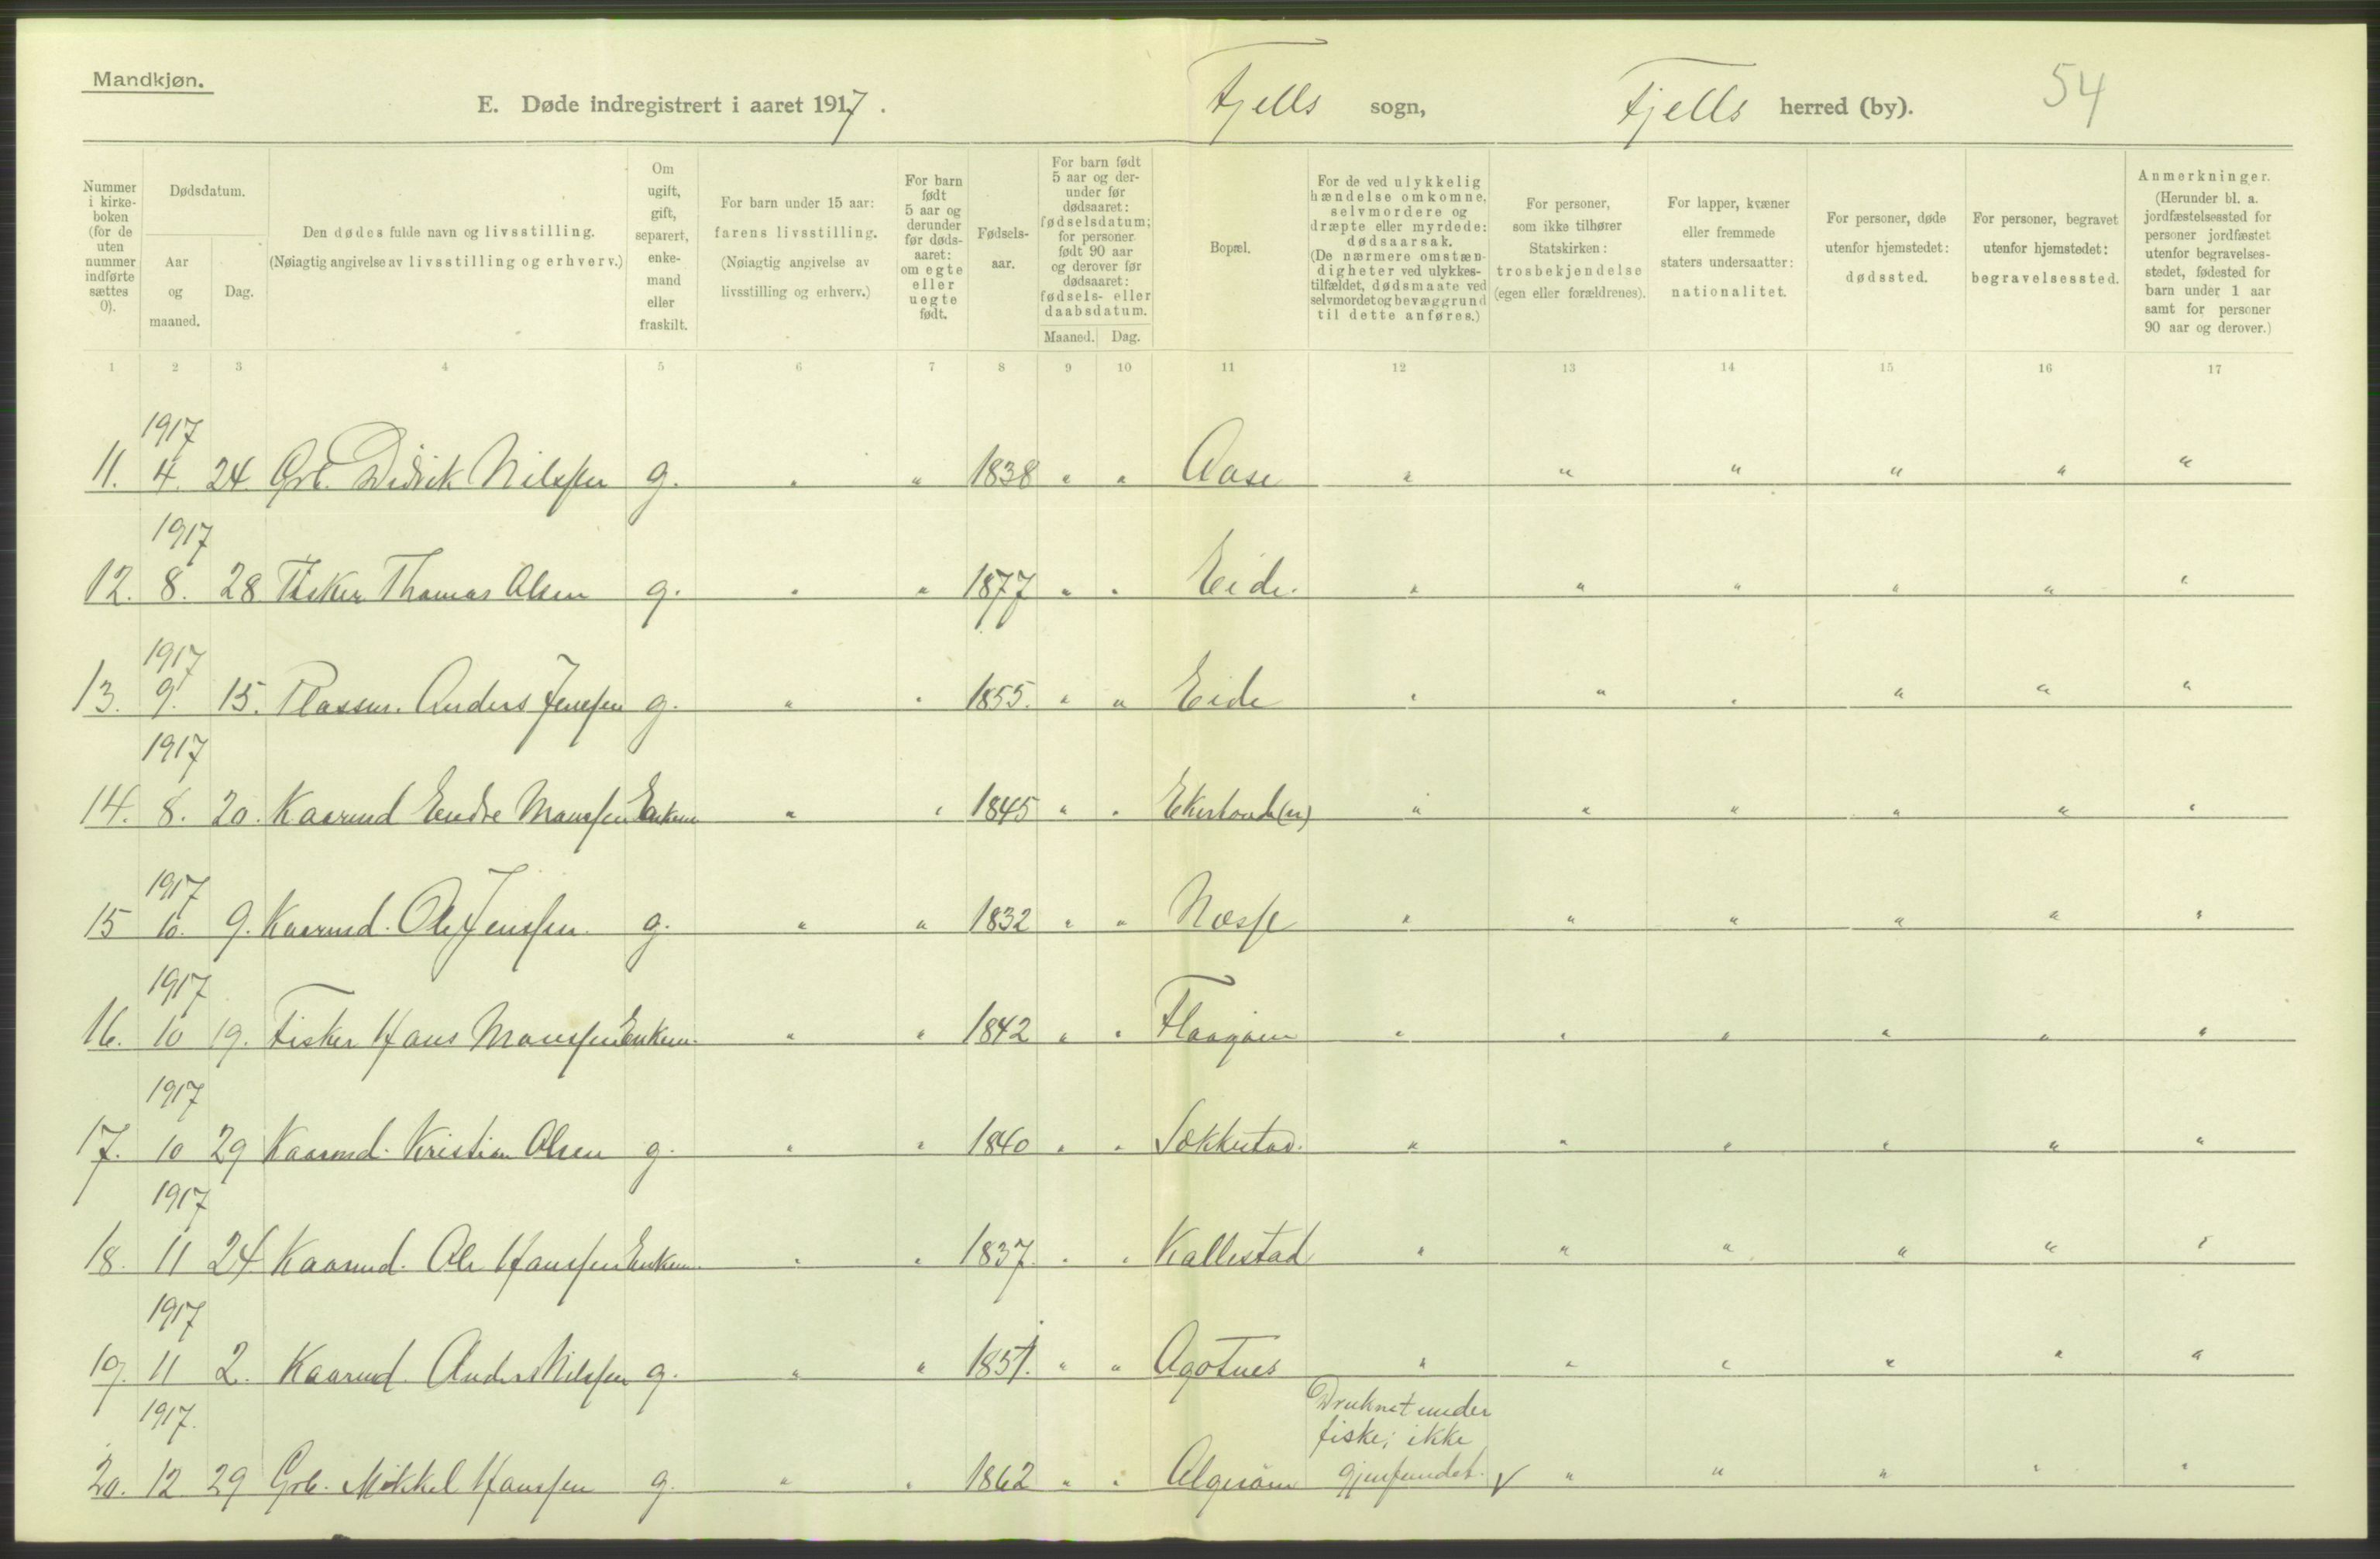 Mandkjøn.
E. Døde indregistrert i aaret 1917.
Fjells sogn,
Fjells herred (by).
54
Nummer i kirkeboken (for de uten nummer indførte sættes 0).
Dødsdatum.
Aar og maaned.
Dag.
Den dødes fulde navn og livsstilling.
(Nøiagtig angivelse av livsstilling og erhverv.)
Om ugift, gift, separert, enkemand eller fraskilt.
For barn under 15 aar: farens livsstilling.
(Nøiagtig angivelse av livsstilling og erhverv.)
For barn født 5 aar og derunder før dødsaaret: om egte eller uegte født.
Fødselsaar.
For barn født 5 aar og derunder før dødsaaret: fødselsdatum; for personer født 90 aar og derover før dødsaaret: fødsels- eller daabsdatum.
Maaned. Dag.
Bopæl.
For de ved ulykkelig hændelse omkomne, selvmordere og dræpte eller myrdede: dødsaarsak.
(De nærmere omstændigheter ved ulykkestilfældet, dødsmaate ved selvmordet og bevæggrund til dette anføres.)
For personer, som ikke tilhører Statskirken: trosbekjendelse (egen eller forældrenes).
For lapper, kvæner eller fremmede staters undersaatter: nationalitet.
For personer, døde utenfor hjemstedet: dødssted.
For personer, begravet utenfor hjemstedet: begravelsessted.
Anmerkninger.
(Herunder bl. a. jordfæstelsessted for personer jordfæstet utenfor begravelsesstedet, fødested for barn under 1 aar samt for personer 90 aar og derover.)
1 2 3 4 5 6 7 8 9 10 11 12 13 14 15 16 17
1917
11. 4. 24. Grb. Didrik Nilssen g. " " 1838 " " Aase " " " " " "
1917
12. 8. 28 Fisker Thomas Olsen g. " " 1877 " " Eide. " " " " " "
1917
13. 9. 15. Plassm. Anders Jenssen g. " " 1855. " " Eide " " " " " "
1917
14. 8. 20. Kaarmd Endre Monssen Enkem " " 1845 " " " " " " " "
1917
15 10. 9. Kaarmd. Ole Jenssen. g. " " 1832 " " Næsse " " " " " "
1917
16. 10 19. Fisker Hans Monssen Enkem. " " 1842 " " Flaagøen " " " " " "
1917
17. 10 29 Kaarmd. Kristian Olsen g. " " 1840 " " " " " " " "
1917
18. 11 24 Kaarmd. Ole Hanssen Enkem. " " 1837. " " Kallestad " " " " " "
1917
19. 11 2. Kaarmd. Anders Nilssen g. " " " " Agotnes " " " " " "
1917.
Druknet under
fiske; ikke
20. 12 29 Grb. Mikkel Hanssen g. " " 1862 " " Algerøen gjenfundet. V " " " " "